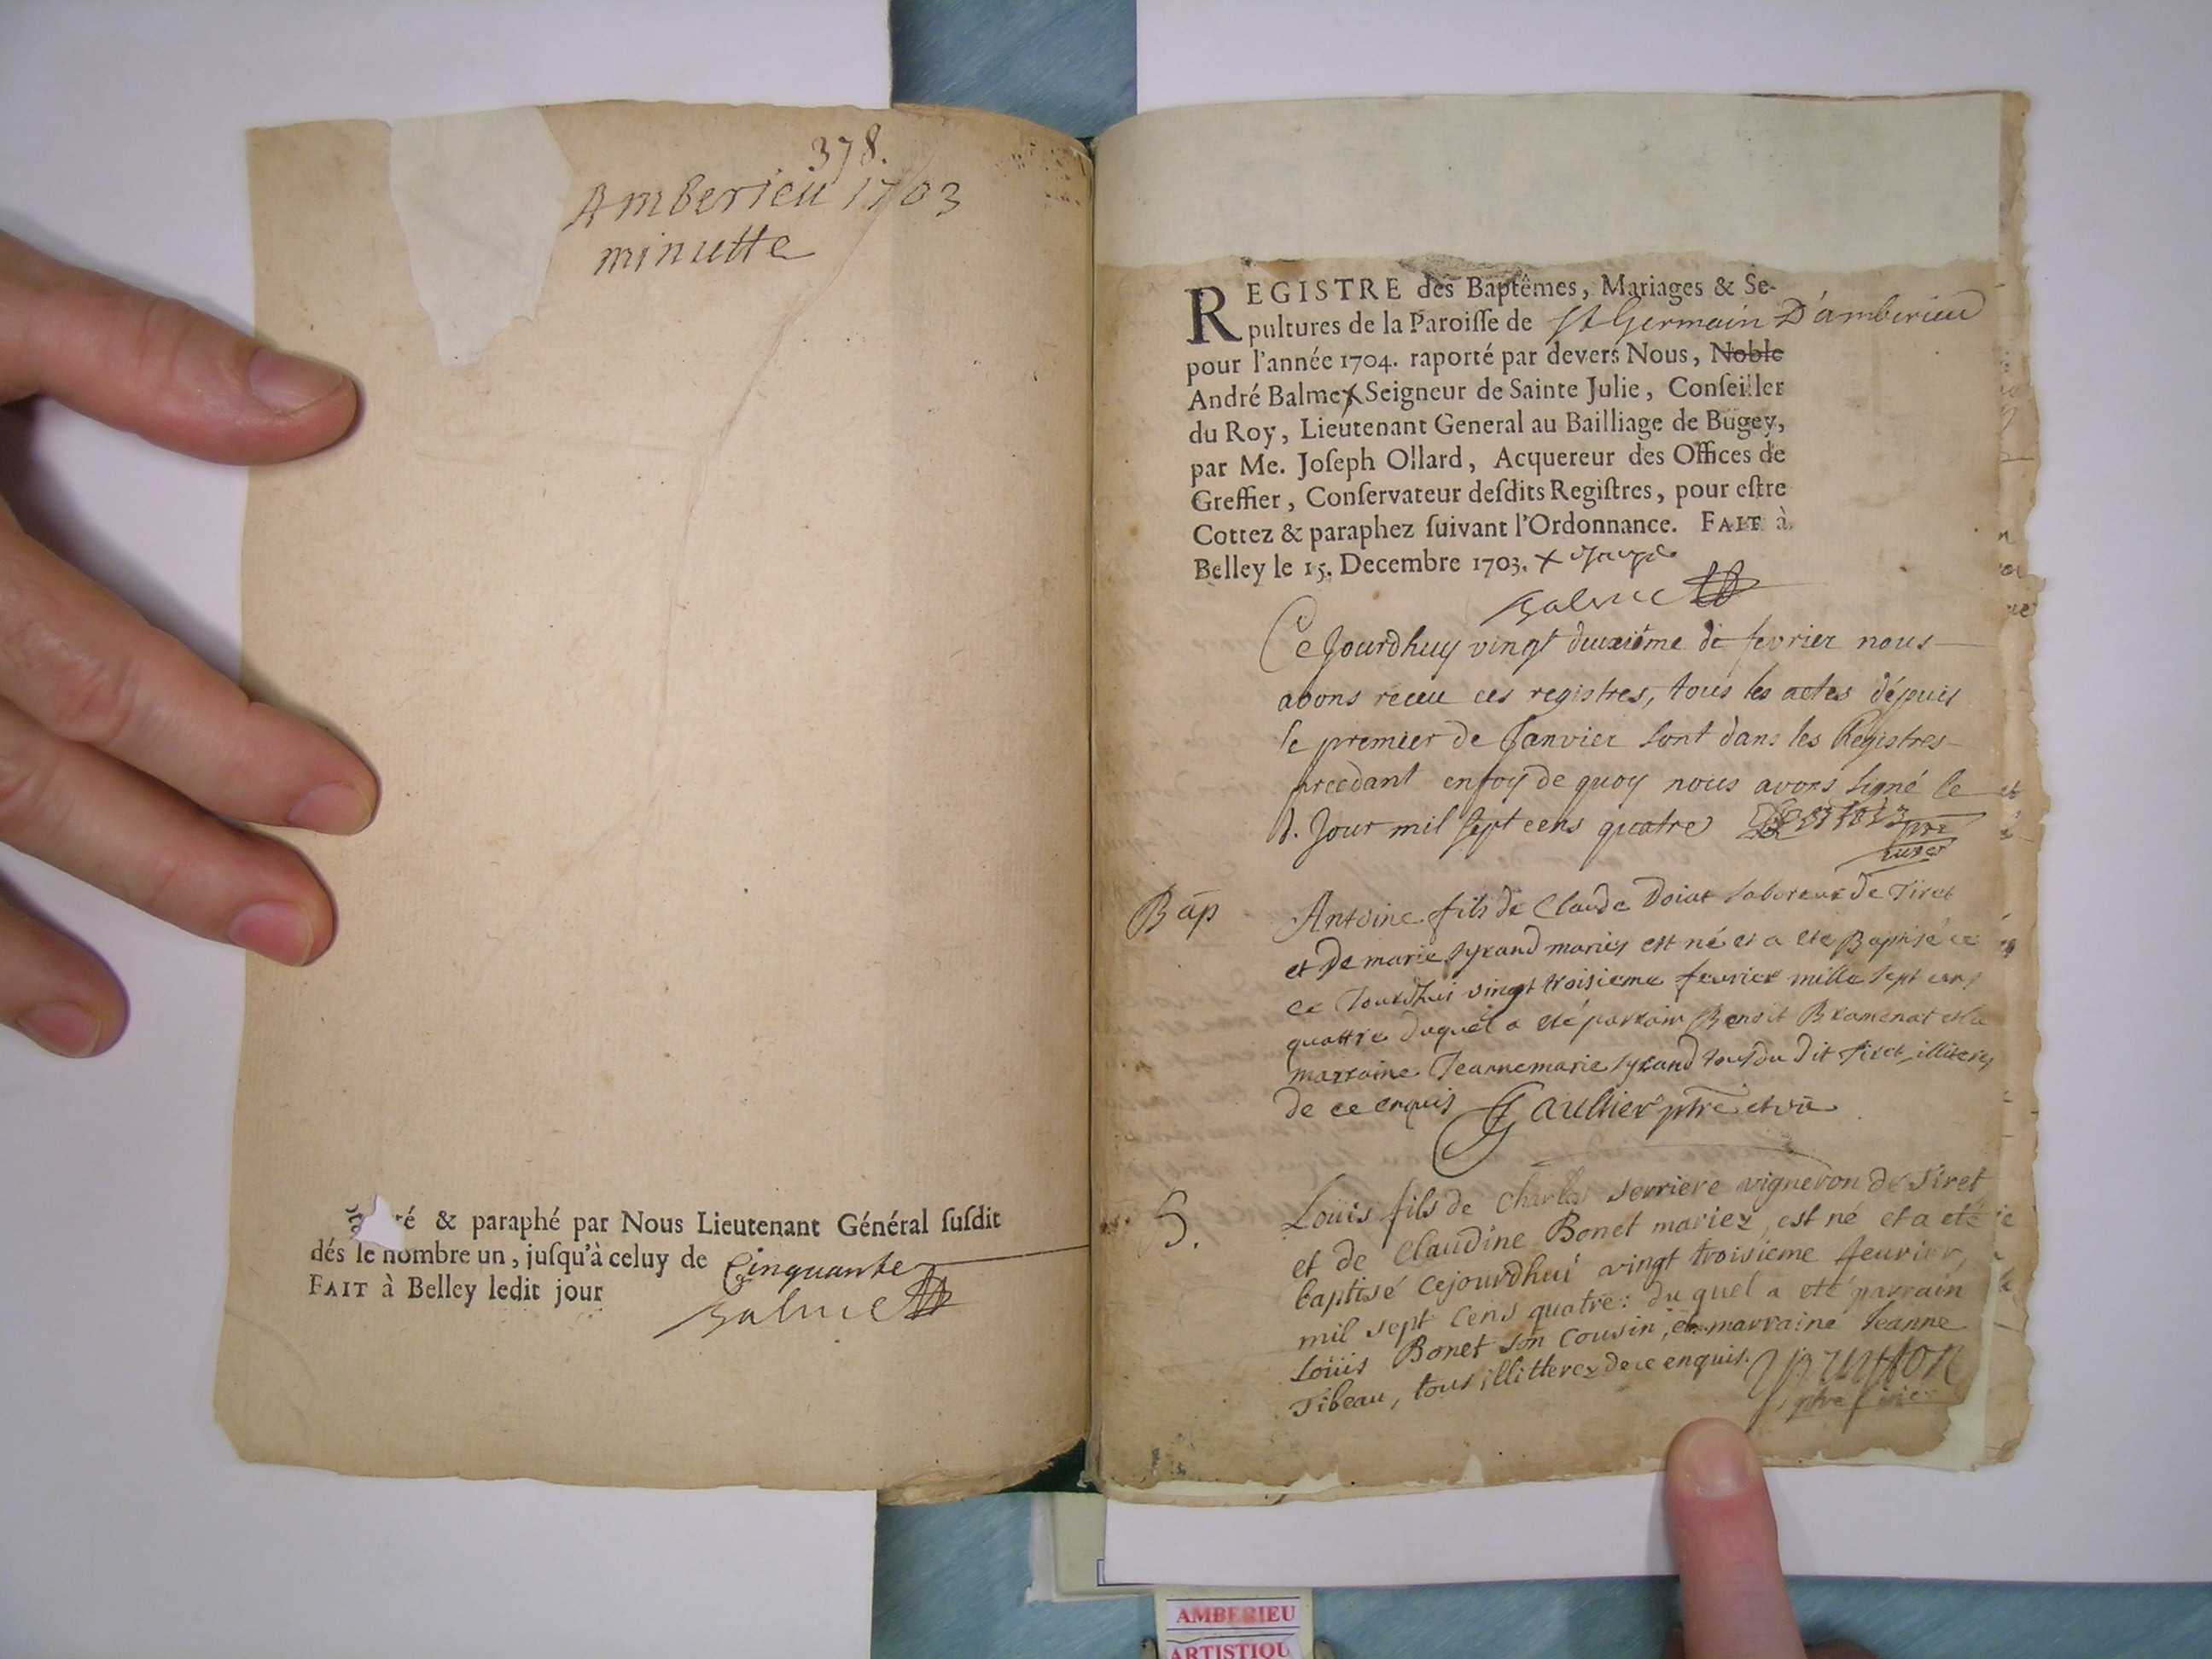 378.
Amberieu 1703
minutte
ré & paraphé par Nous Lieutenant Général ſuſdit
dés le nombre un, juſqu'à celuy de Cinquante
FAIT à Belley ledit jour
Balme
REGISTRE des Baptêmes, Mariages & Se-
pultures de la Paroiſſe de St Germain D'amberieu
pour l'année 1704. raporté par devers Nous, Noble
André Balme Seigneur de Sainte Julie, Conſeiller
du Roy, Lieutenant General au Bailliage de Bugey,
par Me. Joſeph Ollard, Acquereur des Offices de
Greffier, Conſervateur deſdits Regiſtres, pour eſtre
Cottez & paraphez ſuivant l'Ordonnance. FAIT à
Belley le 15. Decembre 1703. +
Balme
Ce Jourdhuy vingt deuxiéme de fevrier nous
avons receu ces registres, tous les actes dépuis
le premier de Janvier sont dans les Registres
precedant en foy de quoy nous avons signé le
d. Jour mil sept cens quatre
Bap
Antoine fils de Claude Doiat laboreur de Tiret
et De marie syrand mariés est né et a ete Baptisé ce
ce Jourdhui vingt troisieme feurier mille sept cens
quattre duquel a eté parrain Benoit Bramenat et la
marraine Jeannemarie syrand tous du Dit Tiret illiterés
de ce enquis Gaultier ptre
B.
Loüis fils de Charles Serriere vigneron de Tiret
et de Claudine Bonet mariez, est né et a eté
baptisé cejourdhui vingt troisieme feurier,
mil sept cens quatre: du quel a eté parrain
Loüis Bonet son cousin, et marraine Jeanne
Tibeau, tous illitterez de ce enquis. Brunon
ptre
AMBERIEU
ARTISTIQU